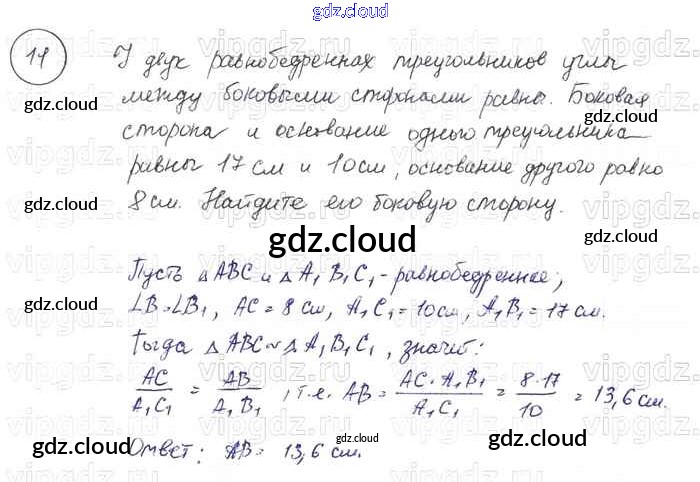 gdz.cloud
17
У двух равнобедренных треугольников углы
между боковыми сторонами равны. Боковая
сторона и основание одного треугольника
равны 17 см и 10 см, основание другого равно
8 см. Найдите его боковую сторону.
gdz.cloud
Пусть △ABC и △A₁B₁C₁ - равнобедренные,
∠B = ∠B₁, AC = 8 см, A₁C₁ = 10 см, A₁B₁ = 17 см.
Тогда △ABC ~ △A₁B₁C₁, значит:
AC/A₁C₁ = AB/A₁B₁, т.е. AB = AC·A₁B₁/A₁C₁ = 8·17/10 = 13,6 см.
Ответ: AB = 13,6 см.
gdz.cloud